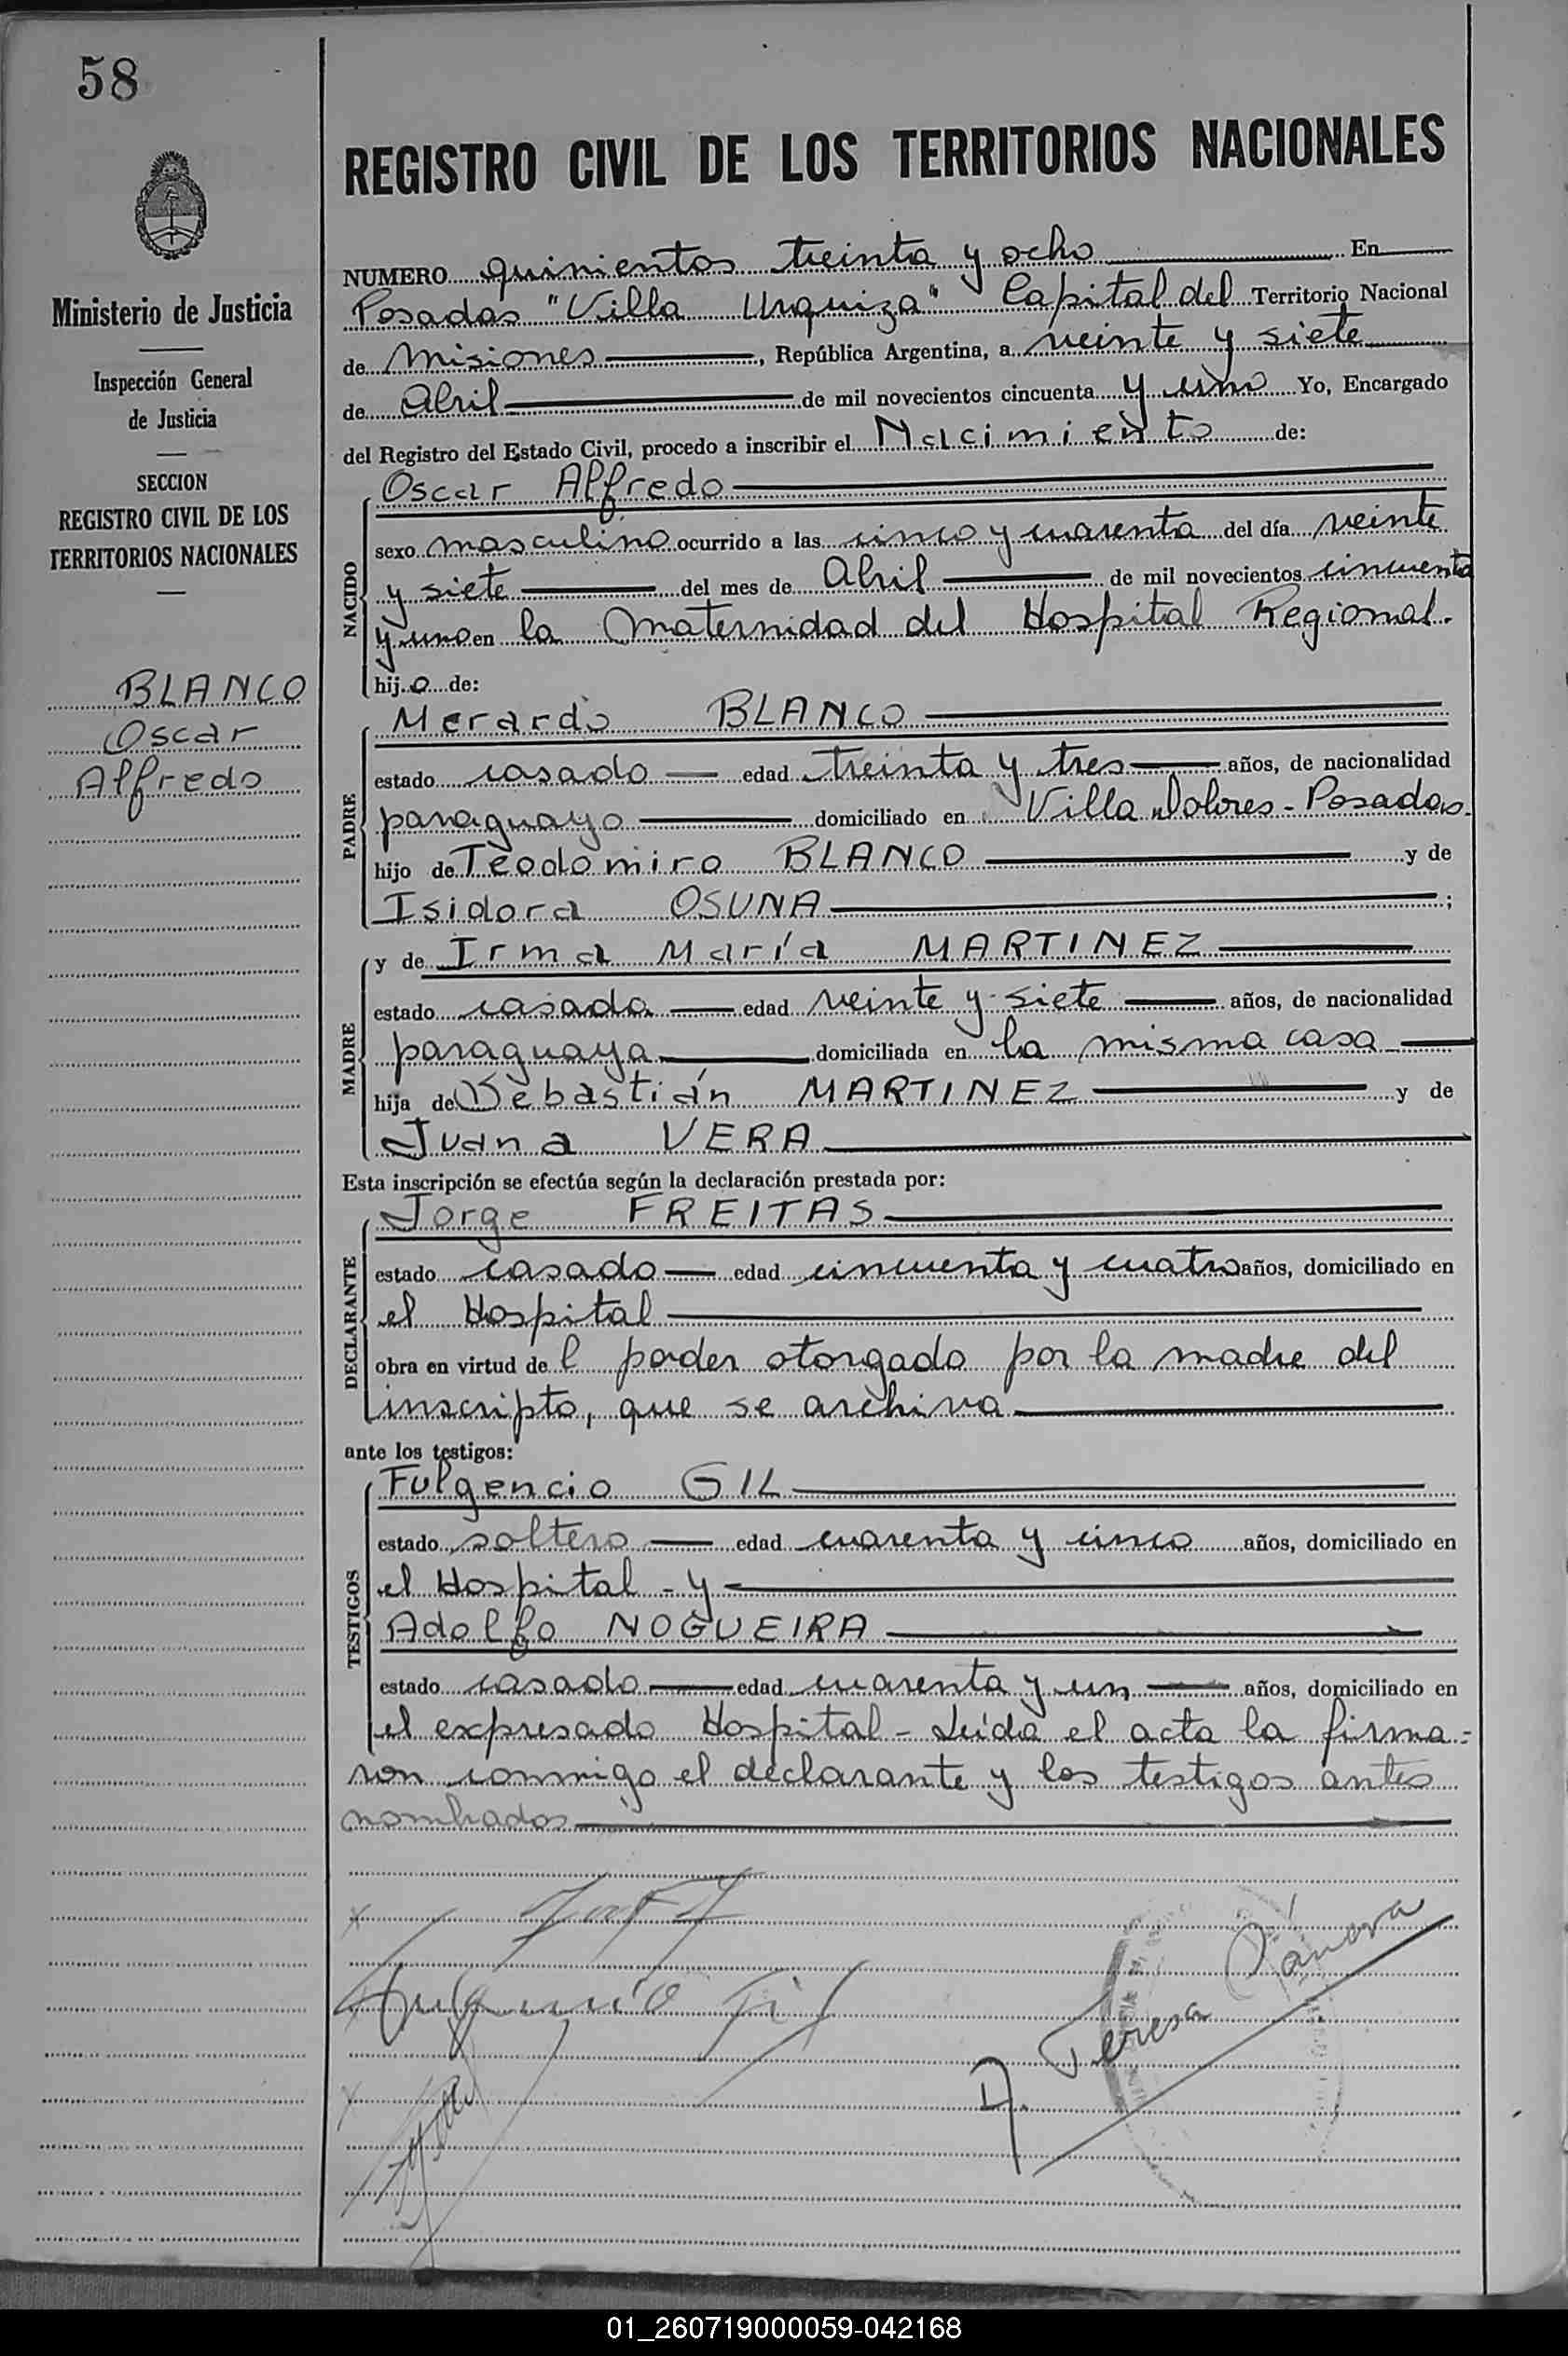 58
Ministerio de Justicia
Inspección General
de Justicia
SECCION
REGISTRO CIVIL DE LOS
TERRITORIOS NACIONALES
BLANCO
Oscar
Alfredo
REGISTRO CIVIL DE LOS TERRITORIOS NACIONALES
NUMERO quinientos treinta y ocho En
Posadas "Villa Urquiza" Capital del Territorio Nacional
de Misiones, República Argentina, a veinte y siete
de Abril de mil novecientos cincuenta y uno Yo, Encargado
del Registro del Estado Civil, procedo a inscribir el Nacimiento de:
NACIDO
Oscar Alfredo
sexo masculino ocurrido a las cinco y cuarenta del día veinte
y siete del mes de Abril de mil novecientos cincuenta
y uno en la Maternidad del Hospital Regional.
hijo de:
PADRE
Merardo BLANCO
estado casado edad treinta y tres años, de nacionalidad
paraguayo domiciliado en Villa Dolores - Posadas.
hijo de Teodomiro BLANCO y de
Isidora OSUNA ;
MADRE
y de Irma María MARTINEZ
estado casada edad veinte y siete años, de nacionalidad
paraguaya domiciliada en la misma casa
hija de Sebastián MARTINEZ y de
Juana VERA
Esta inscripción se efectúa según la declaración prestada por:
DECLARANTE
Jorge FREITAS
estado casado edad cincuenta y cuatro años, domiciliado en
el Hospital
obra en virtud del poder otorgado por la madre del
inscripto, que se archiva
ante los testigos:
TESTIGOS
Fulgencio GIL
estado soltero edad cuarenta y cinco años, domiciliado en
el Hospital - y
Adolfo NOGUEIRA
estado casado edad cuarenta y un años, domiciliado en
el expresado Hospital - Leída el acta la firma-
ron conmigo el declarante y los testigos antes
nombrados
Fulgencio Gil
A. Teresa
01_260719000059-042168